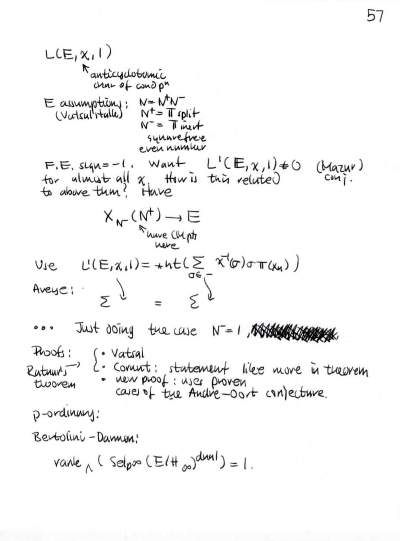 57
L(E,χ,1)
anticyclotomic
char of cond pⁿ
E assumption: N = N⁺N⁻
N⁺ = π split
N⁻ = π inert
squarefree
even number
F.E. sign = -1. Want L'(E,χ,1) ≠ 0 (Mazur)
for almost all χ. How is this related conj.
to above thm? Have
X_N⁻(N⁺) → E
have CM pts
here
Use L'(E,χ,1) = * ht(Σ χ⁻¹(σ)σ π(xₙ))
σ∈
Σ = Σ
... Just doing the case N⁻ = 1,
Proofs: • Vatsal
Ratner's → • Cornut: statement like more in theorem
theorem • new proof: uses proven
cases of the André-Oort conjecture.
p-ordinary:
Bertolini-Darmon:
rank_Λ (Sel_p∞ (E/H_∞)^dual) = 1.